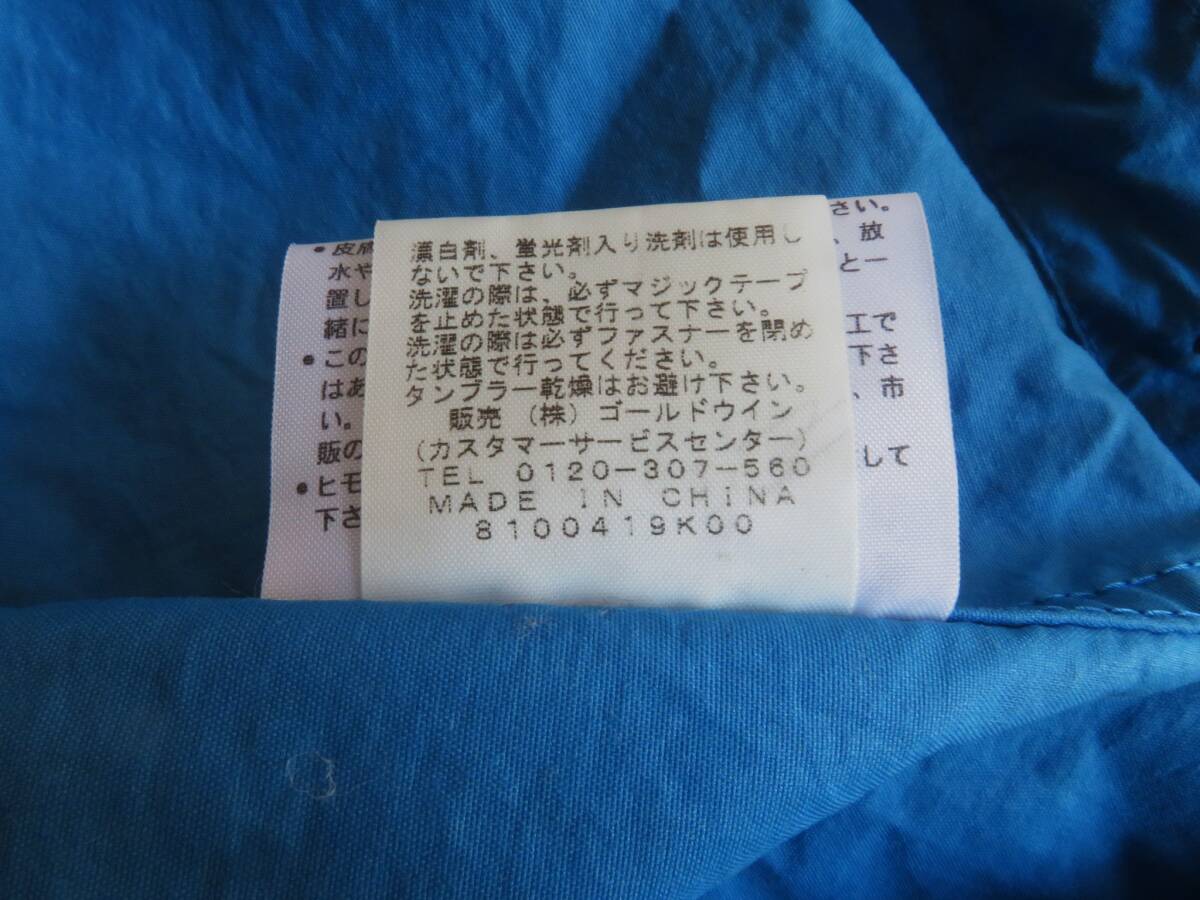 漂白剤、蛍光剤入り洗剤は使用し
ないで下さい。
洗濯の際は、必ずマジックテープ
を止めた状態で行って下さい。
洗濯の際は必ずファスナーを閉め
た状態で行ってください。
タンブラー乾燥はお避け下さい。
販売 (株)ゴールドウイン
(カスタマーサービスセンター)
TEL 0120-307-560
MADE IN CHINA
8100419K00
さい。
●皮膚
水や 、放
置し と一
緒に 工で
●この 下さ
はあ 、市
い。
販の して
●ヒモ
下さ